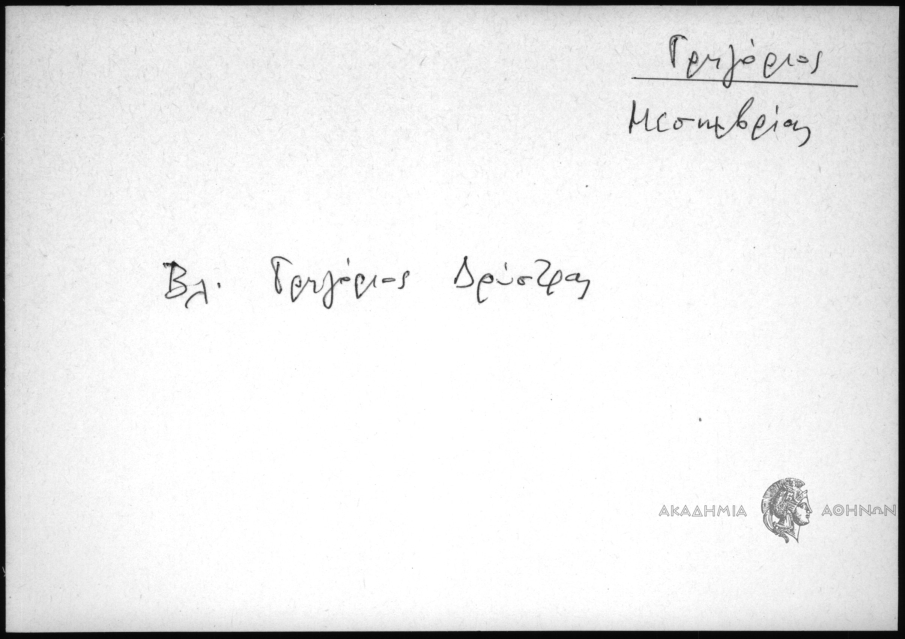 Γρηγόριος
Μεσημβρίας
Βλ. Γρηγόριος Δρύστρας
ΑΚΑΔΗΜΙΑ ΑΘΗΝΩΝ